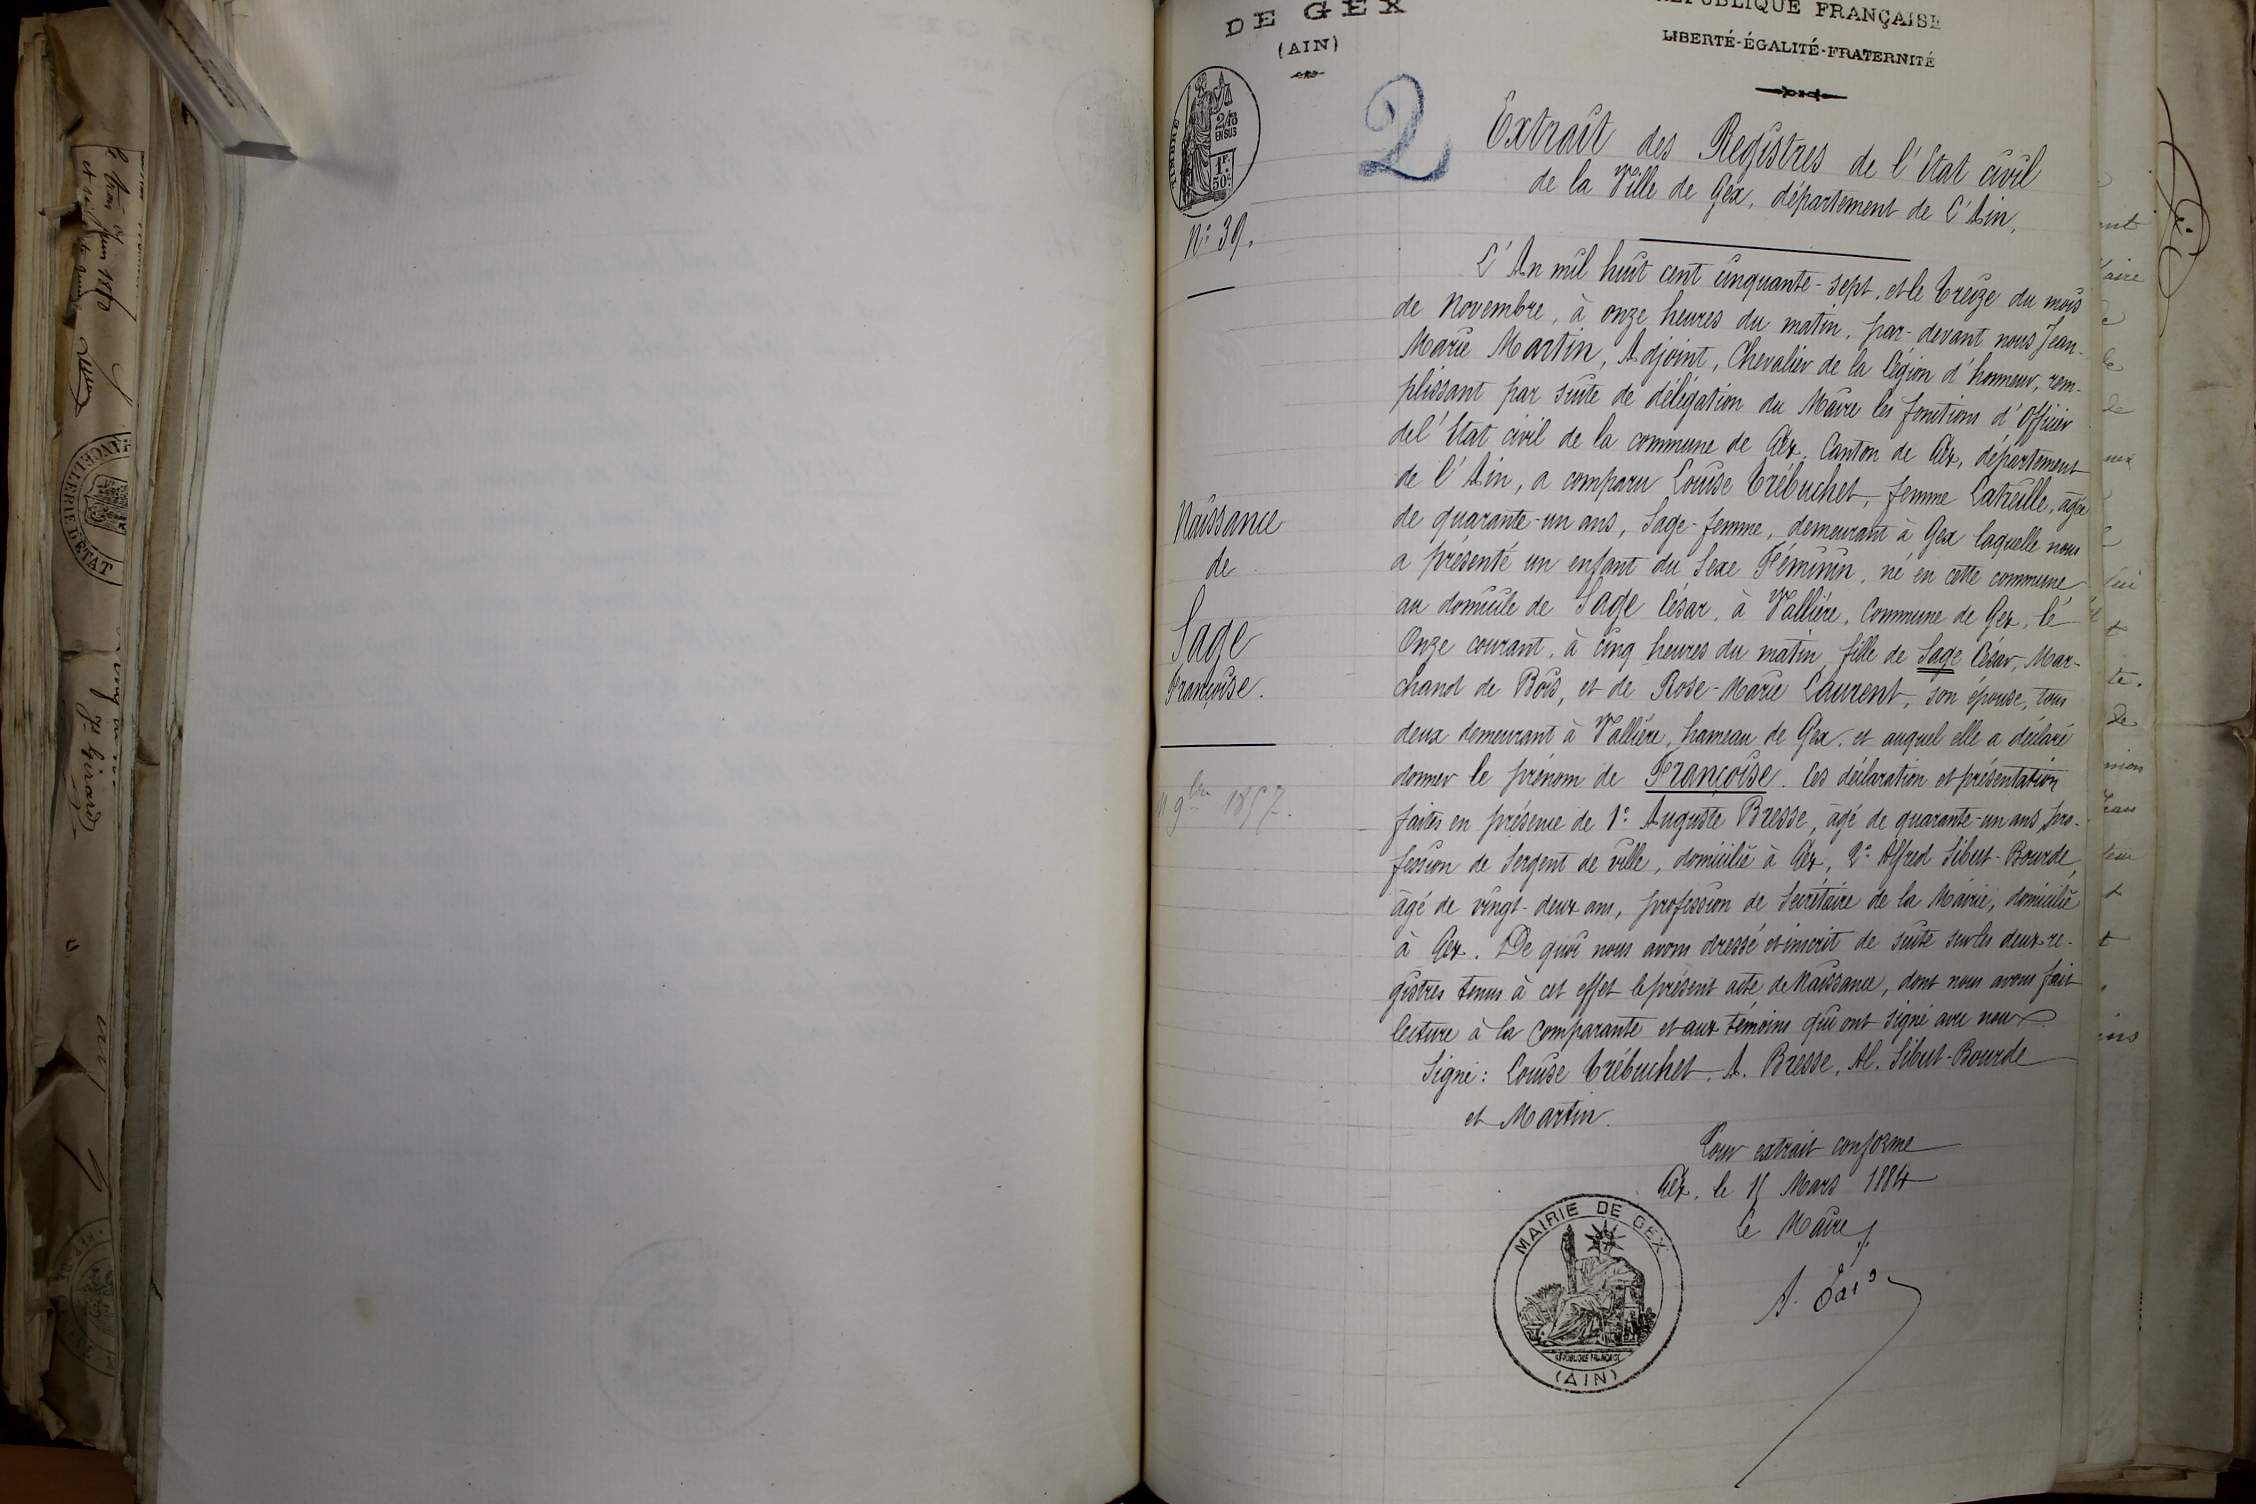 DE GEX
(AIN)
RÉPUBLIQUE FRANÇAISE
LIBERTÉ-ÉGALITÉ-FRATERNITÉ
TIMBRE
2/10
EN SUS
1F.
50c
2
Extrait des Registres de l'Etat civil
de la Ville de Gex, département de l'Ain.
No 39.
L'An mil huit cent cinquante-sept, et le treize du mois
de Novembre, à onze heures du matin, par-devant nous Jean-
Marie Martin, Adjoint, Chevalier de la légion d'honneur, rem-
plissant par suite de délégation du Maire les fonctions d'Officier
de l'Etat civil de la commune de Gex, Canton de Gex, département
de l'Ain, a comparu Louise Trébuchet, femme Latreille, agée
de quarante-un ans, Sage-femme, demeurant à Gex laquelle nous
a présenté un enfant du Sexe Féminin, né en cette commune
au domicile de Sage César, à Vallière, Commune de Gex, le
Onze courant, à cinq heures du matin, fille de Sage César, Mar-
chand de Bois, et de Rose-Marie Laurent, son épouse, tous
deux demeurant à Vallière, hameau de Gex, et auquel elle a déclaré
donner le prénom de Françoise. Ces déclaration et présentation
faites en présence de 1o Auguste Bresse, âgé de quarante-un ans, pro-
fession de Sergent de ville, domicilié à Gex, 2o Alfred Sibut-Bourde,
âgé de vingt-deux ans, profession de Secrétaire de la Mairie, domicilié
à Gex. De quoi nous avons dressé et inscrit de suite sur les deux re-
gistres tenus à cet effet le présent acte de Naissance, dont nous avons fait
lecture à la Comparante et aux témoins qui ont signé avec nous
Signé: Louise Trébuchet, A. Bresse, Al. Sibut-Bourde
et Martin.
Naissance
de
Sage
Françoise.
11 9bre 1857.
Pour extrait conforme
Gex, le 11 Mars 1884
Le Maire,
MAIRIE DE GEX
RÉPUBLIQUE FRANÇAISE
(AIN)
CHANCELLERIE D'ETAT